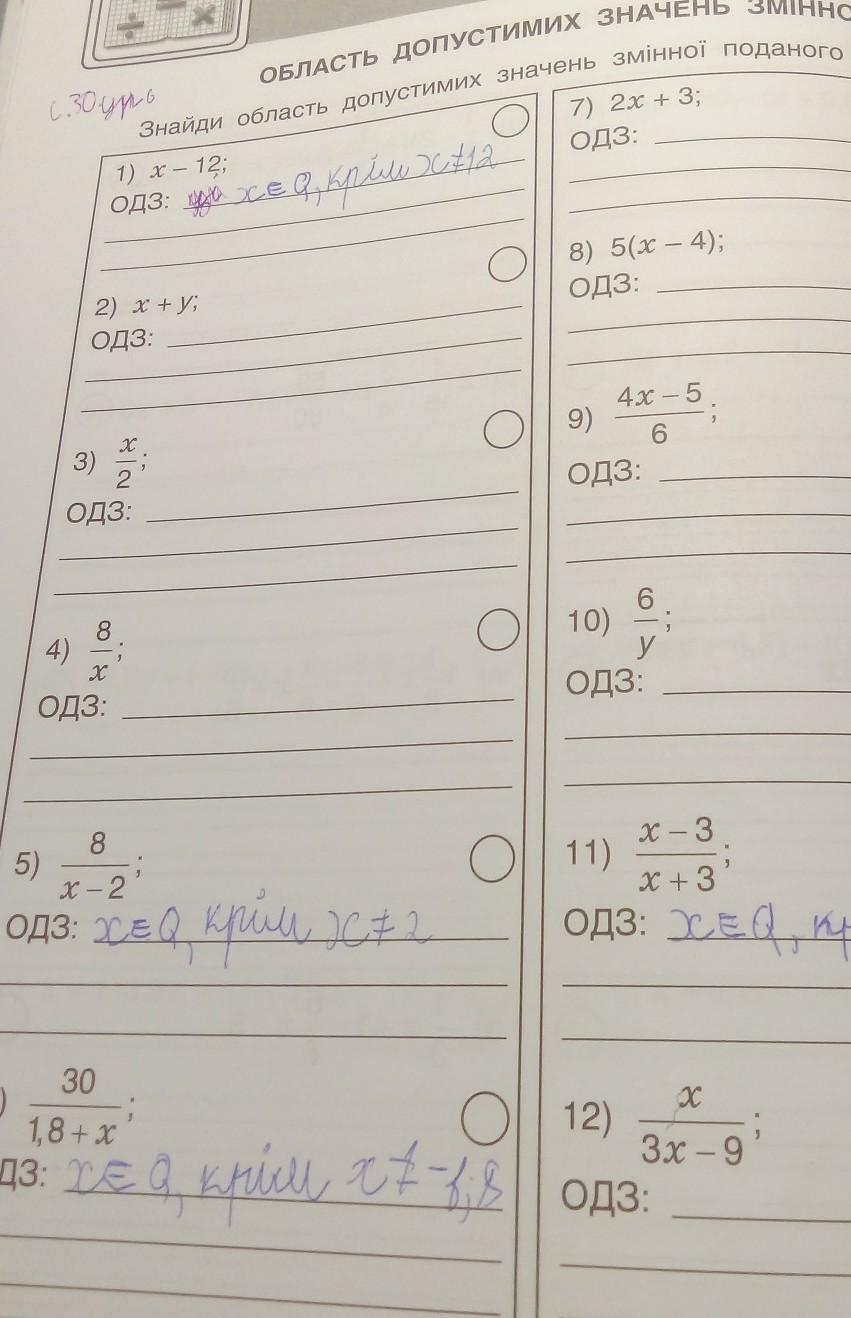 ОБЛАСТЬ ДОПУСТИМИХ ЗНАЧЕНЬ ЗМІННО
Знайди область допустимих значень змінної поданого
1) x – 12;
ОДЗ: x∈Q, крім x≠12
2) x + y;
ОДЗ:
3) x/2;
ОДЗ:
4) 8/x;
ОДЗ:
5) 8/(x – 2);
ОДЗ: x∈Q, крім x≠2
) 30/(1,8 + x);
ДЗ: x∈Q, крім x≠-1,8
7) 2x + 3;
ОДЗ:
8) 5(x – 4);
ОДЗ:
9) (4x – 5)/6;
ОДЗ:
10) 6/y;
ОДЗ:
11) (x – 3)/(x + 3);
ОДЗ: x∈Q, кр
12) x/(3x – 9);
ОДЗ: